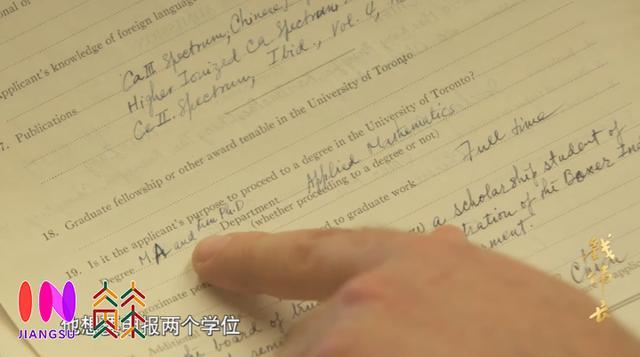 onal of
Applicant's knowledge of foreign language
Ca III Spectrum, Chinese J
Higher Ionized Ca Spectrum
Ca II. Spectrum, Ibid., Vol. 4,
7. Publications
18. Graduate fellowship or other award tenable in the University of Toronto
19. Is it the applicant's purpose to proceed to a degree in the University of Toronto?
Degree MA and then Ph.D Department Applied Mathematics
(whether proceeding to a degree or not)
ed to graduate work Full time
a scholarship student of
tration of the Boxer Ind
ment.
China
proximate
Additional
the board of
钱伟长
IN
JIANGSU
他想要申报两个学位